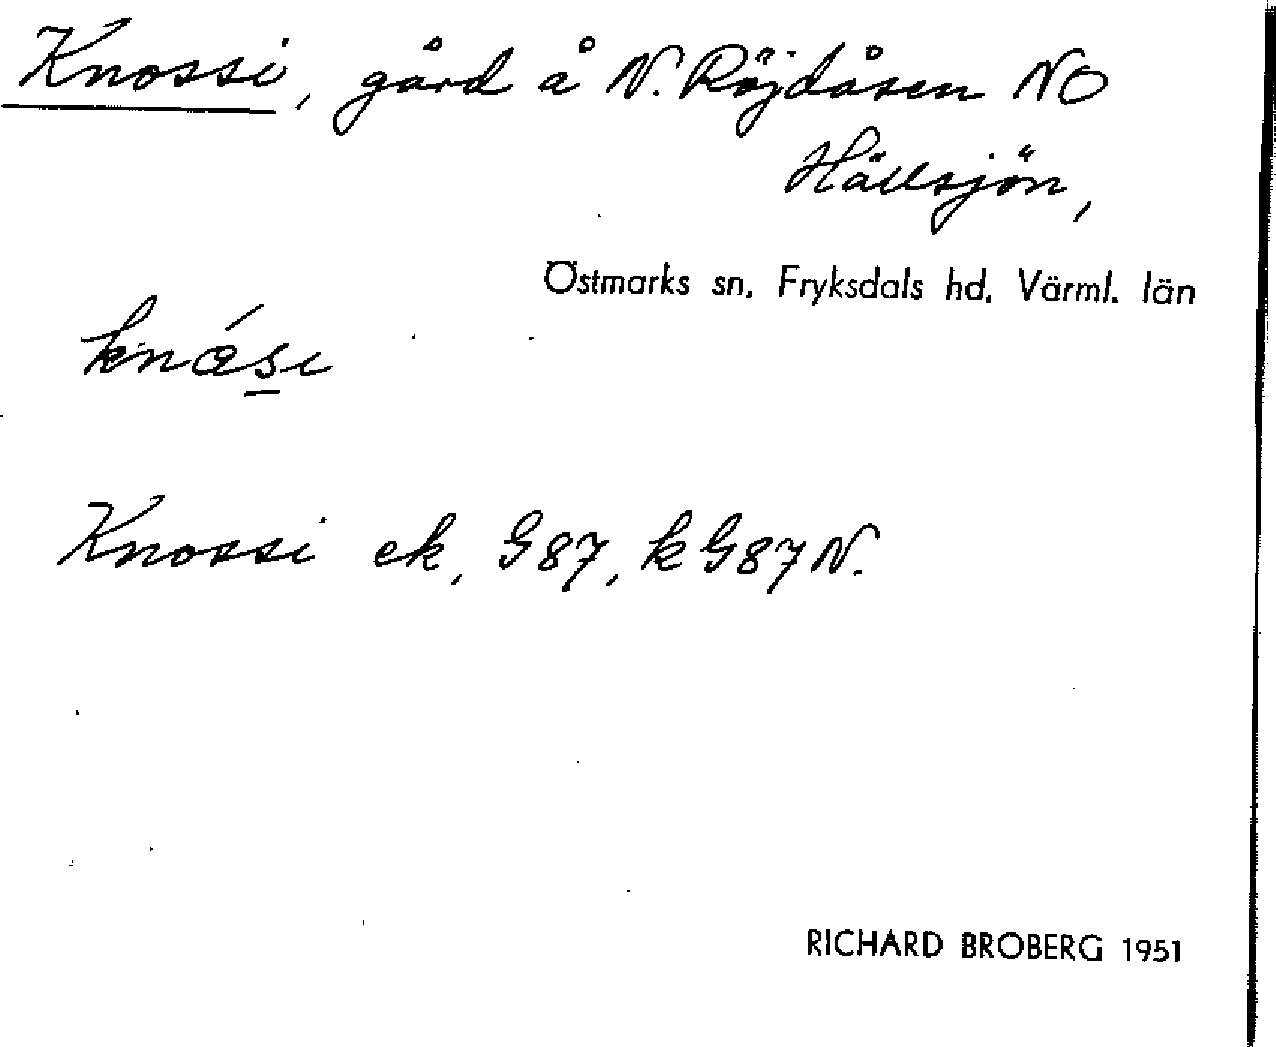 Knossi, gård å N. Röjdåsen NO
Hällsjön,
Östmarks sn. Fryksdals hd. Värml. län
Knossi ek, G87, k G87 N.
RICHARD BROBERG 1951